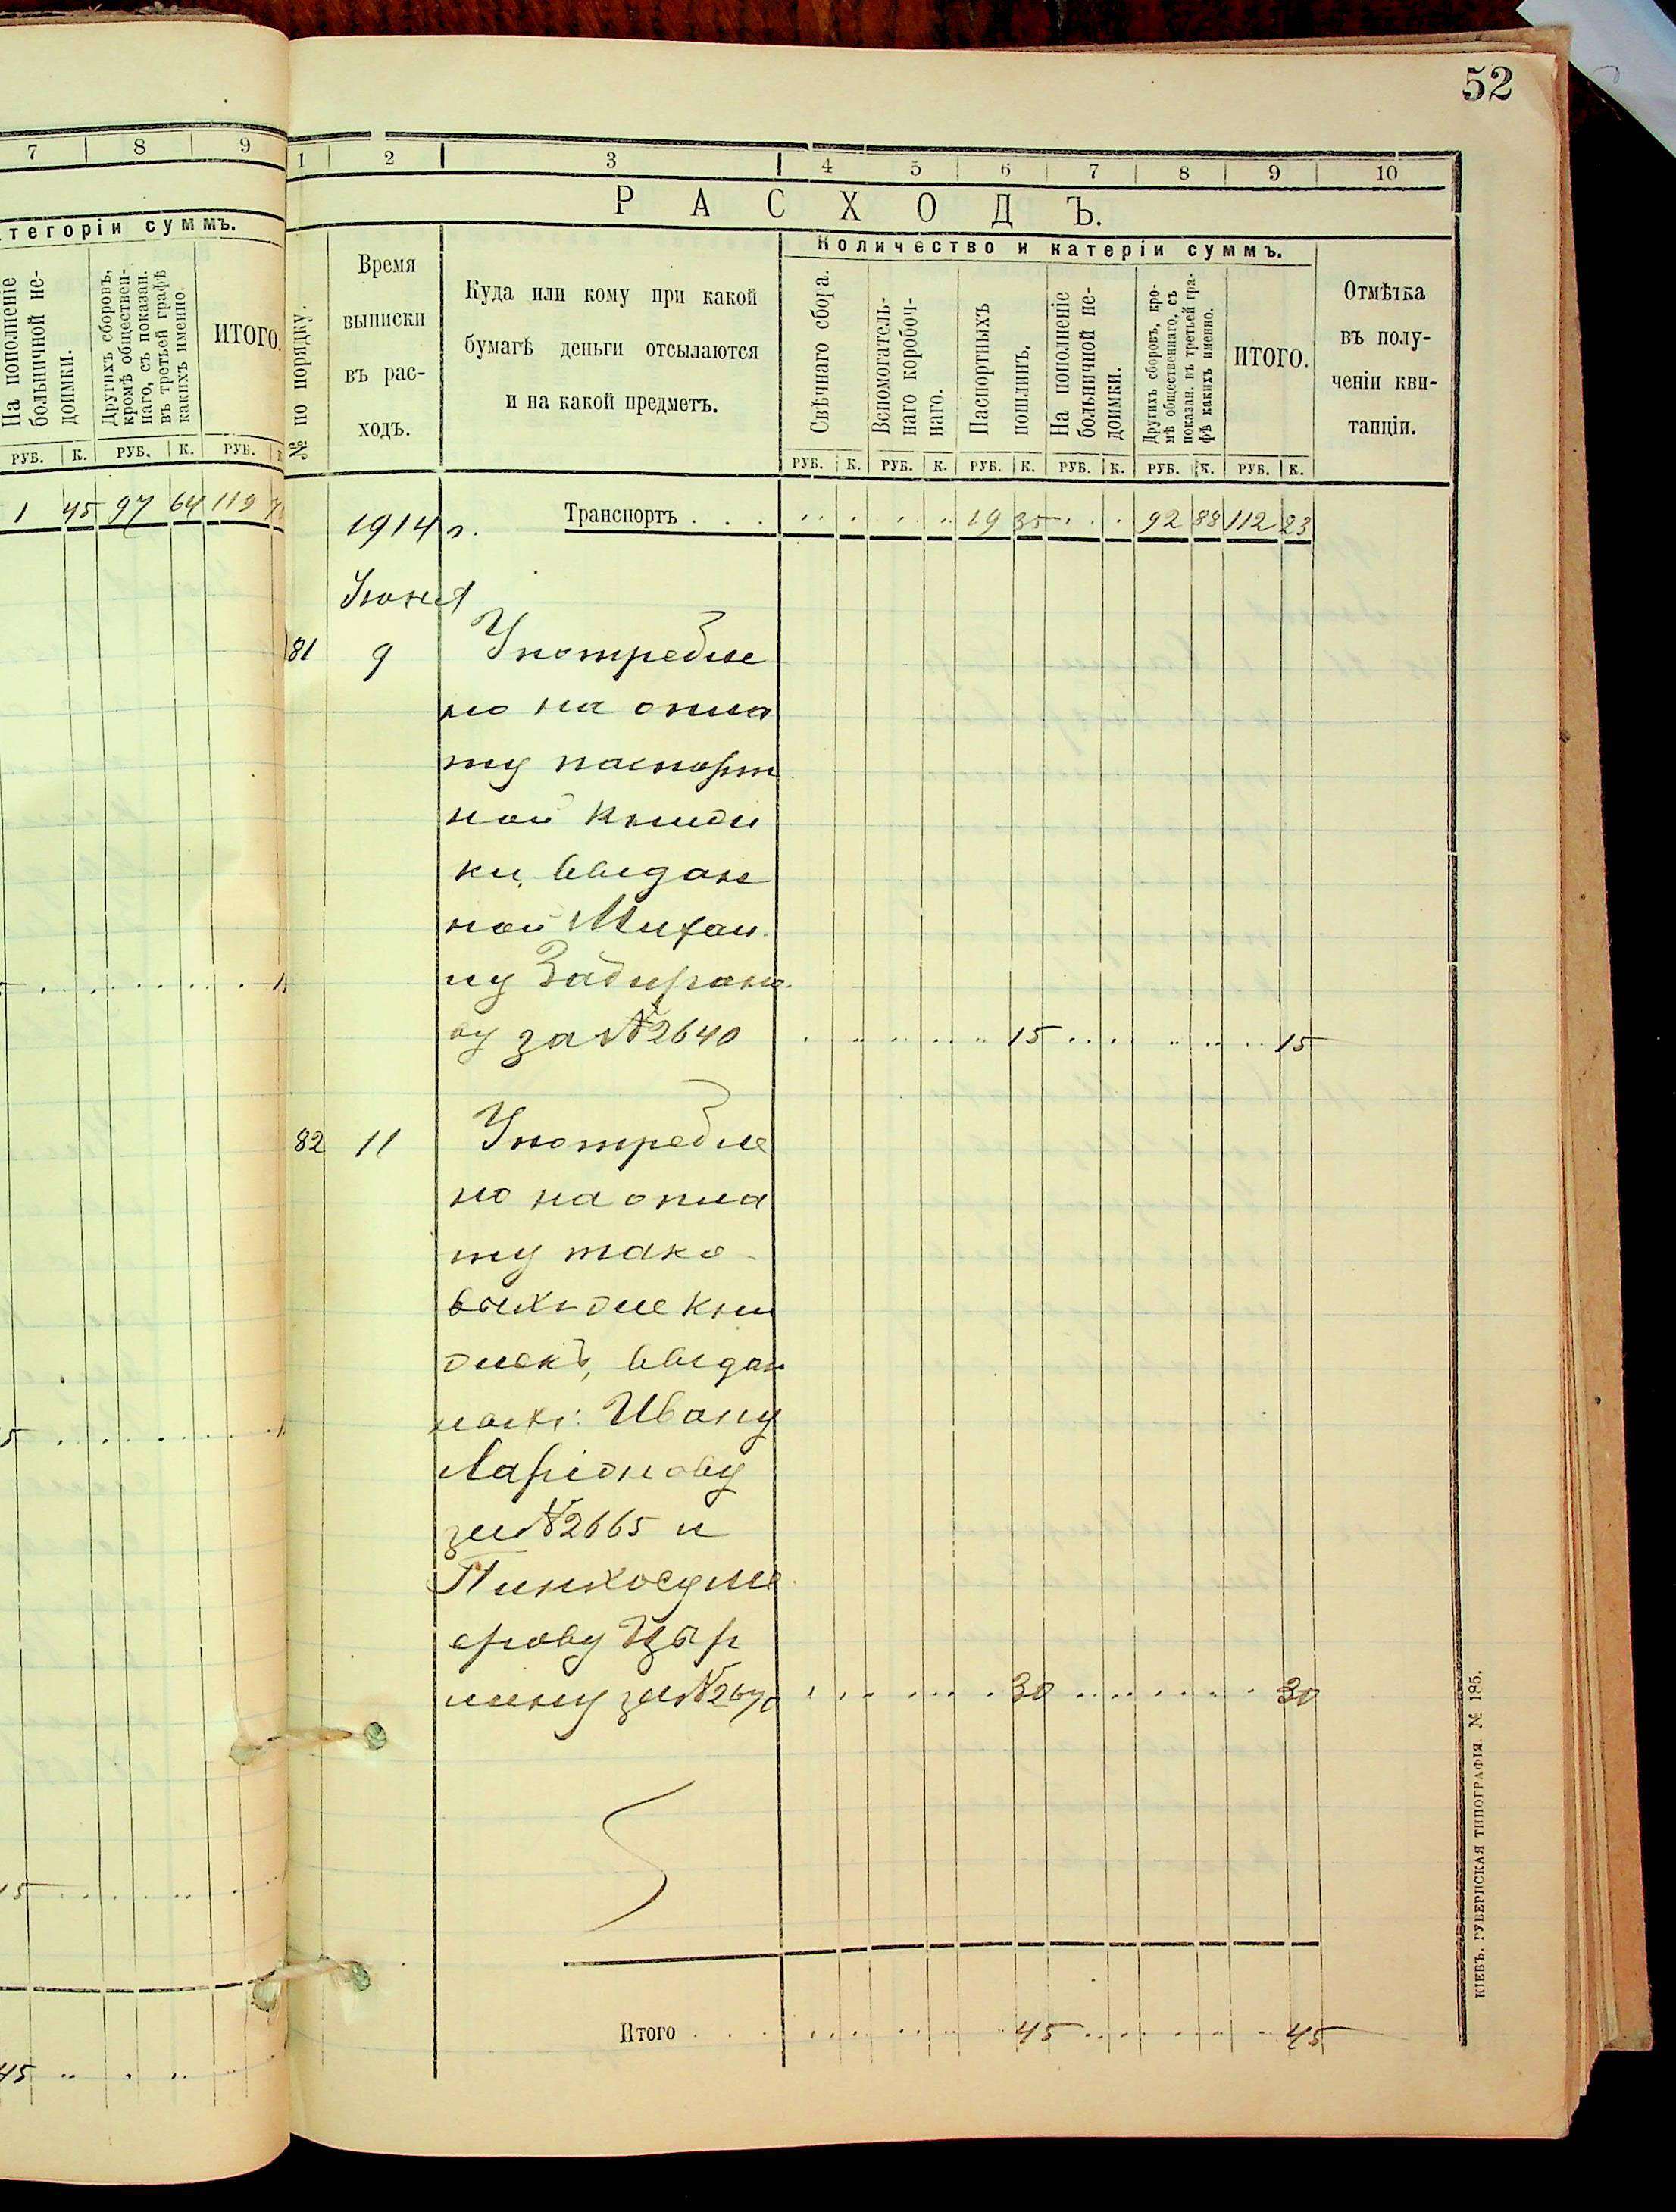 52
7 8 9
тегоріи суммъ.
На пополненіе
больничной не-
доимки.
Другихъ сборовъ,
кромѣ обществен-
наго, съ показан.
въ третьей графѣ
какихъ именно.
ИТОГО.
РУБ. К. РУБ. К. РУБ.
1 45 97 64 119
1 2 3 4 5 6 7 8 9 10
РАСХОДЪ.
№ по порядку.
Время
выписки
въ рас-
ходъ.
Куда или кому при какой
бумагѣ деньги отсылаются
и на какой предметъ.
Количество и катеріи суммъ.
Свѣчнаго сбора.
Вспомогатель-
наго коробоч-
наго.
Паспортныхъ
пошлинъ.
На пополненіе
больничной не-
доимки.
Другихъ сборовъ, кро-
мѣ общественнаго, съ
показан. въ третьей гра-
фѣ какихъ именно.
ИТОГО.
Отмѣтка
въ полу-
ченіи кви-
танціи.
РУБ. К. РУБ. К. РУБ. К. РУБ. К. РУБ. К. РУБ. К.
1914 г. Транспортъ . . . 19 35 92 88 112 23
Іюня
81 9 Употребле
но на опла
ту паспорт
ной книж
ки, выдан
ной Михаи
лу
ву за №2640 15 15
82 11 Употребле
но на опла
ту тако
выхъ же кни
жекъ, выдан
ныхъ: Ивану
Ларіонову
за №2665 и
за №2670 30 30
Итого . . . 45 45
КІЕВЪ. ГУБЕРНСКАЯ ТИПОГРАФІЯ. № 185.